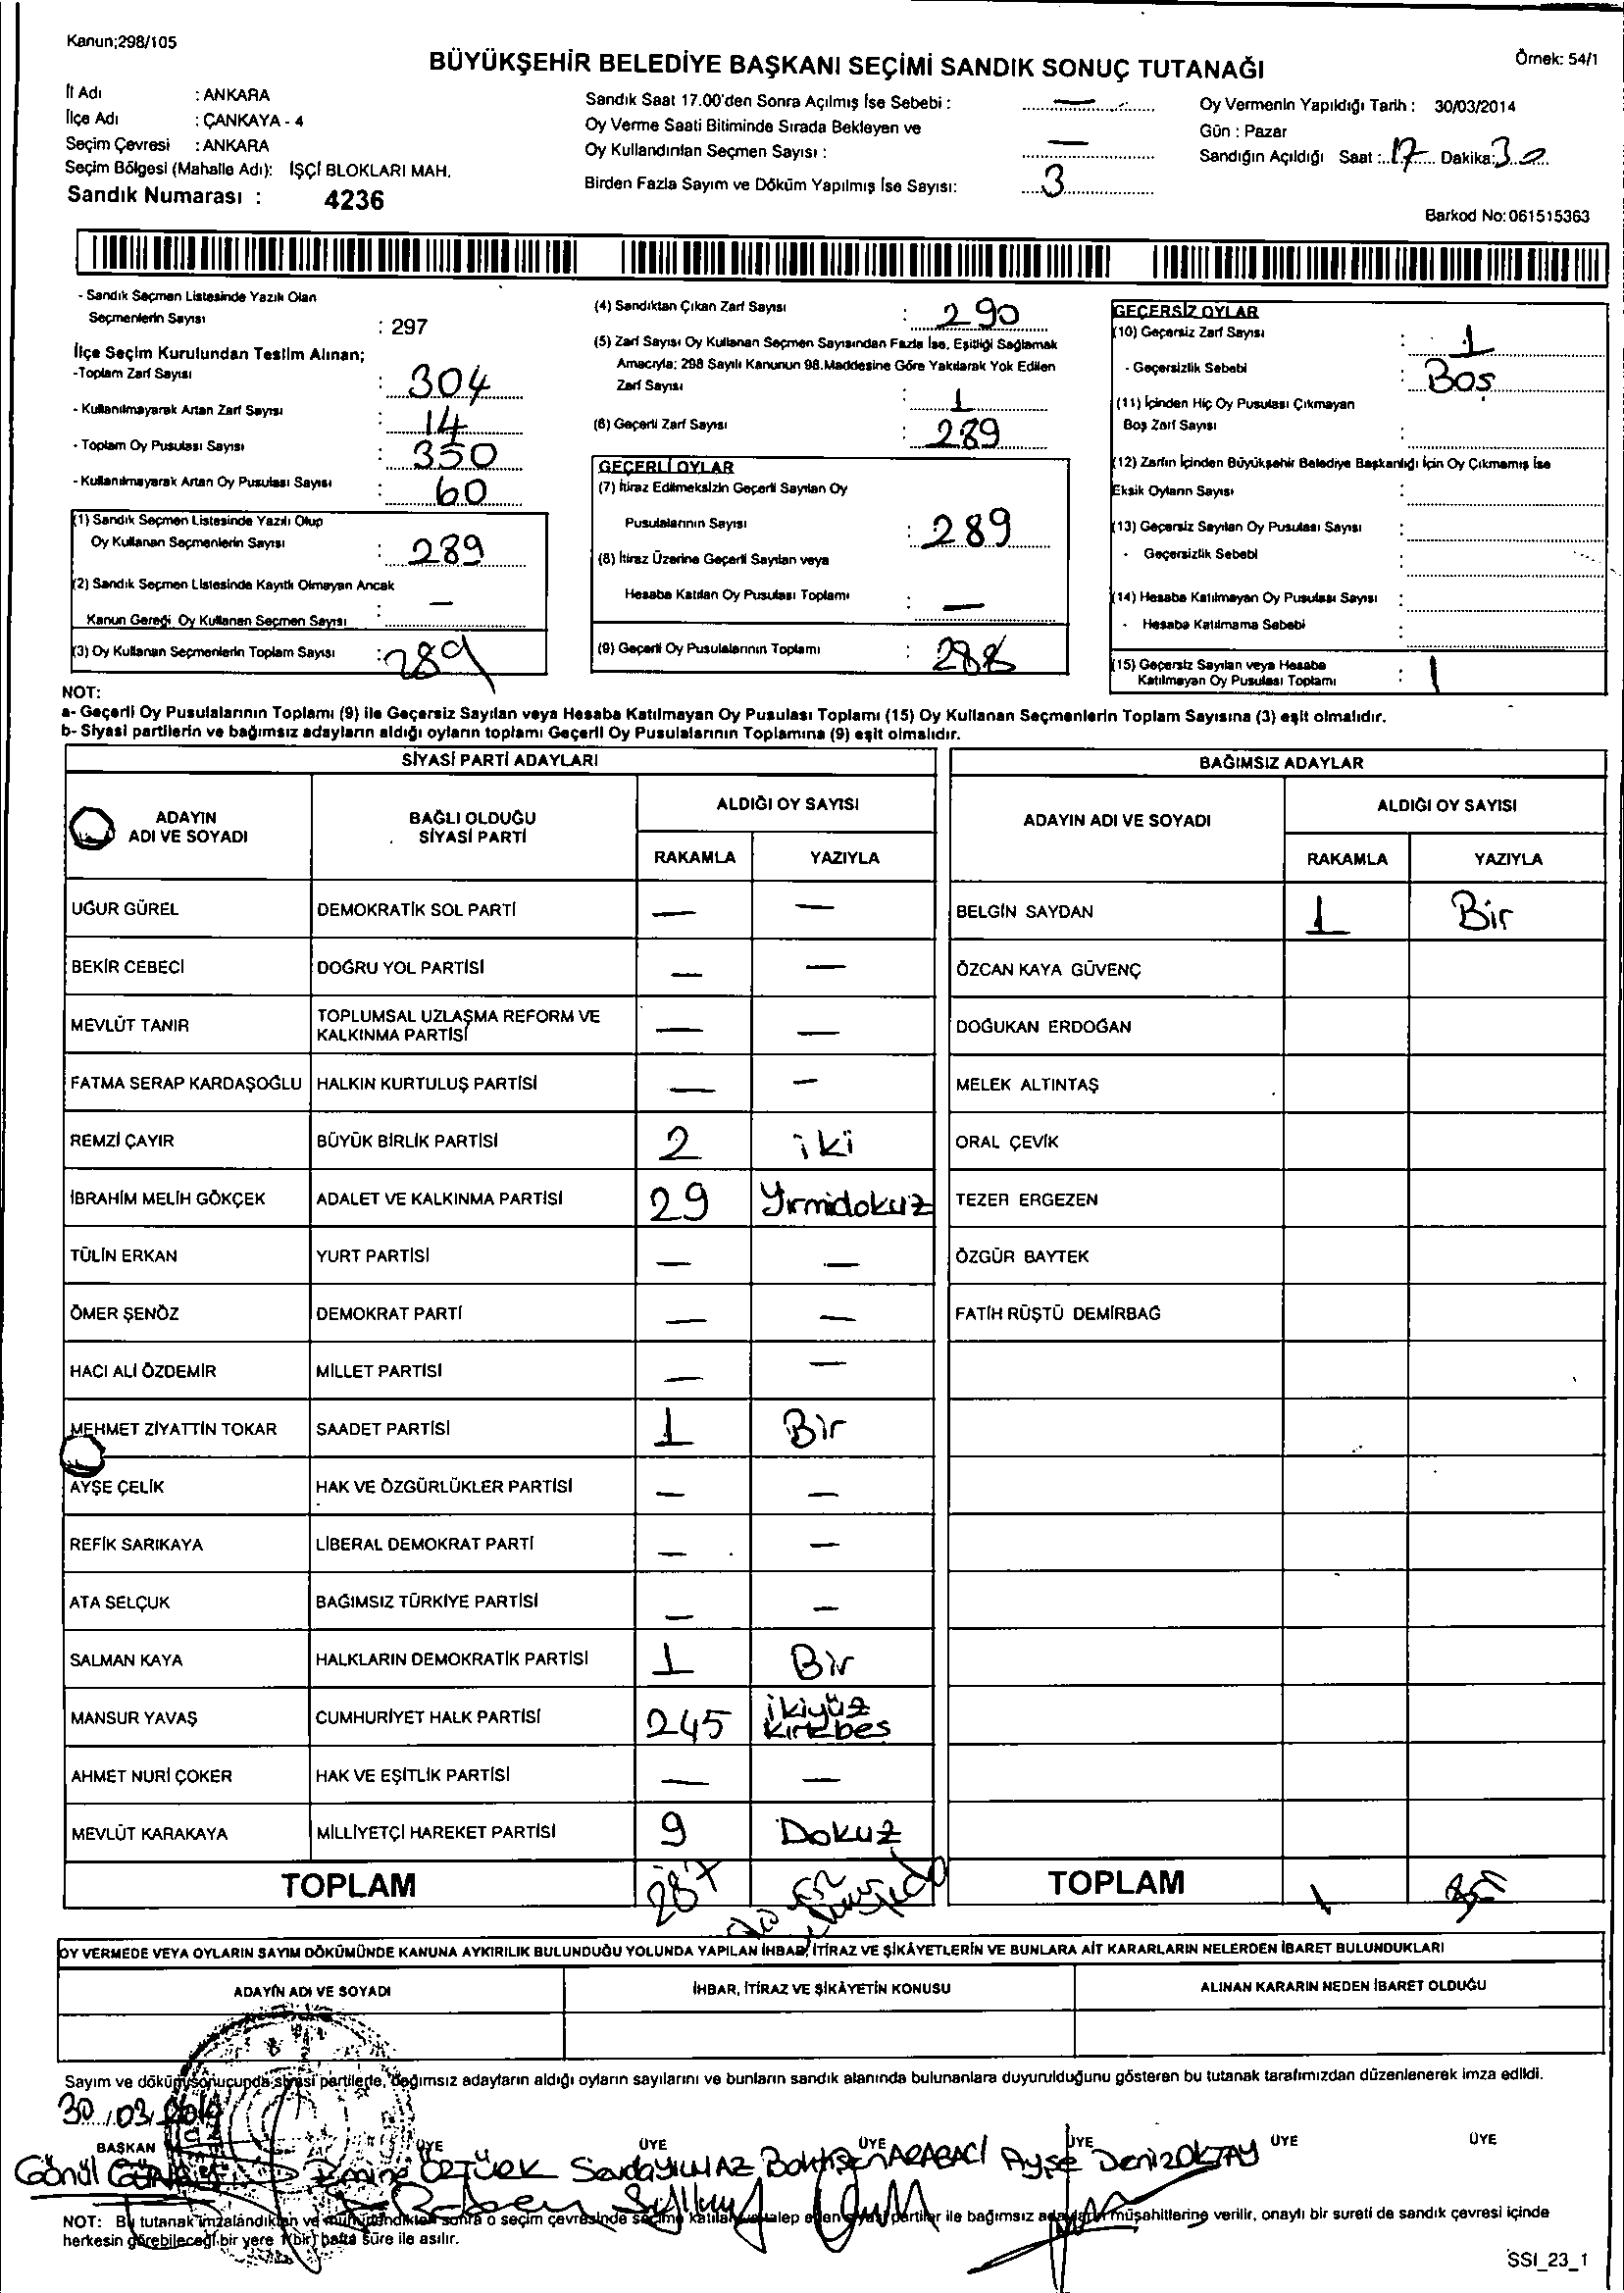 Kanun;298/105
BÜYÜKŞEHİR BELEDİYE BAŞKANI SEÇİMİ SANDIK SONUÇ TUTANAĞI
Örnek: 54/1
İl Adı : ANKARA
İlçe Adı : ÇANKAYA - 4
Seçim Çevresi : ANKARA
Seçim Bölgesi (Mahalle Adı): İŞÇİ BLOKLARI MAH.
Sandık Numarası : 4236
Sandık Saat 17.00'den Sonra Açılmış İse Sebebi : —
Oy Verme Saati Bitiminde Sırada Bekleyen ve
Oy Kullandırılan Seçmen Sayısı : —
Birden Fazla Sayım ve Döküm Yapılmış İse Sayısı: 3
Oy Vermenin Yapıldığı Tarih : 30/03/2014
Gün : Pazar
Sandığın Açıldığı Saat : 17 Dakika: 30
Barkod No: 061515363
- Sandık Seçmen Listesinde Yazılı Olan
Seçmenlerin Sayısı : 297
İlçe Seçim Kurulundan Teslim Alınan;
-Toplam Zarf Sayısı : 304
- Kullanılmayarak Artan Zarf Sayısı : 14
- Toplam Oy Pusulası Sayısı : 350
- Kullanılmayarak Artan Oy Pusulası Sayısı : 60
(1) Sandık Seçmen Listesinde Yazılı Olup
Oy Kullanan Seçmenlerin Sayısı : 289
(2) Sandık Seçmen Listesinde Kayıtlı Olmayan Ancak
Kanun Gereği Oy Kullanan Seçmen Sayısı : —
(3) Oy Kullanan Seçmenlerin Toplam Sayısı : 289
(4) Sandıktan Çıkan Zarf Sayısı : 290
(5) Zarf Sayısı Oy Kullanan Seçmen Sayısından Fazla İse, Eşitliği Sağlamak
Amacıyla; 298 Sayılı Kanunun 98.Maddesine Göre Yakılarak Yok Edilen
Zarf Sayısı : 1
(6) Geçerli Zarf Sayısı : 289
GEÇERLİ OYLAR
(7) İtiraz Edilmeksizin Geçerli Sayılan Oy
Pusulalarının Sayısı : 289
(8) İtiraz Üzerine Geçerli Sayılan veya
Hesaba Katılan Oy Pusulası Toplamı : —
(9) Geçerli Oy Pusulalarının Toplamı : 288
GEÇERSİZ OYLAR
(10) Geçersiz Zarf Sayısı : 1
- Geçersizlik Sebebi : Boş
(11) İçinden Hiç Oy Pusulası Çıkmayan
Boş Zarf Sayısı :
(12) Zarfın İçinden Büyükşehir Belediye Başkanlığı İçin Oy Çıkmamış İse
Eksik Oyların Sayısı :
(13) Geçersiz Sayılan Oy Pusulası Sayısı :
- Geçersizlik Sebebi :
(14) Hesaba Katılmayan Oy Pusulası Sayısı :
- Hesaba Katılmama Sebebi :
(15) Geçersiz Sayılan veya Hesaba
Katılmayan Oy Pusulası Toplamı : 1
NOT:
a- Geçerli Oy Pusulalarının Toplamı (9) ile Geçersiz Sayılan veya Hesaba Katılmayan Oy Pusulası Toplamı (15) Oy Kullanan Seçmenlerin Toplam Sayısına (3) eşit olmalıdır.
b- Siyasi partilerin ve bağımsız adayların aldığı oyların toplamı Geçerli Oy Pusulalarının Toplamına (9) eşit olmalıdır.
SİYASİ PARTİ ADAYLARI
ADAYIN ADI VE SOYADI
BAĞLI OLDUĞU SİYASİ PARTİ
ALDIĞI OY SAYISI
RAKAMLA YAZIYLA
UĞUR GÜREL DEMOKRATİK SOL PARTİ — —
BEKİR CEBECİ DOĞRU YOL PARTİSİ — —
MEVLÜT TANIR TOPLUMSAL UZLAŞMA REFORM VE KALKINMA PARTİSİ — —
FATMA SERAP KARDAŞOĞLU HALKIN KURTULUŞ PARTİSİ — —
REMZİ ÇAYIR BÜYÜK BİRLİK PARTİSİ 2 iki
İBRAHİM MELİH GÖKÇEK ADALET VE KALKINMA PARTİSİ 29 Yirmidokuz
TÜLİN ERKAN YURT PARTİSİ — —
ÖMER ŞENÖZ DEMOKRAT PARTİ — —
HACI ALİ ÖZDEMİR MİLLET PARTİSİ — —
MEHMET ZİYATTİN TOKAR SAADET PARTİSİ 1 Bir
AYŞE ÇELİK HAK VE ÖZGÜRLÜKLER PARTİSİ — —
REFİK SARIKAYA LİBERAL DEMOKRAT PARTİ — —
ATA SELÇUK BAĞIMSIZ TÜRKİYE PARTİSİ — —
SALMAN KAYA HALKLARIN DEMOKRATİK PARTİSİ 1 Bir
MANSUR YAVAŞ CUMHURİYET HALK PARTİSİ 245 ikiyüz kırkbeş
AHMET NURİ ÇOKER HAK VE EŞİTLİK PARTİSİ — —
MEVLÜT KARAKAYA MİLLİYETÇİ HAREKET PARTİSİ 9 Dokuz
TOPLAM 287
BAĞIMSIZ ADAYLAR
ADAYIN ADI VE SOYADI
ALDIĞI OY SAYISI
RAKAMLA YAZIYLA
BELGİN SAYDAN 1 Bir
ÖZCAN KAYA GÜVENÇ
DOĞUKAN ERDOĞAN
MELEK ALTINTAŞ
ORAL ÇEVİK
TEZER ERGEZEN
ÖZGÜR BAYTEK
FATİH RÜŞTÜ DEMİRBAĞ
TOPLAM 1 Bir
OY VERMEDE VEYA OYLARIN SAYIM DÖKÜMÜNDE KANUNA AYKIRILIK BULUNDUĞU YOLUNDA YAPILAN İHBAR, İTİRAZ VE ŞİKÂYETLERİN VE BUNLARA AİT KARARLARIN NELERDEN İBARET BULUNDUKLARI
ADAYIN ADI VE SOYADI
İHBAR, İTİRAZ VE ŞİKÂYETİN KONUSU
ALINAN KARARIN NEDEN İBARET OLDUĞU
Sayım ve döküm sonucunda siyasi partilerle, bağımsız adayların aldığı oyların sayılarını ve bunların sandık alanında bulunanlara duyurulduğunu gösteren bu tutanak tarafımızdan düzenlenerek imza edildi.
30/03/2014
BAŞKAN ÜYE ÜYE ÜYE ÜYE ÜYE ÜYE
Gönül Emine ÖZTÜRK Sevda YILMAZ ARABACI Ayşe Deniz OKTAY
NOT: Bu tutanak imzalandıktan ve mühürlendikten sonra o seçim çevresinde seçime katılan ve talep eden siyasi partiler ile bağımsız adayların müşahitlerine verilir, onaylı bir sureti de sandık çevresi içinde
herkesin görebileceği bir yere 1(bir) hafta süre ile asılır.
SSI_23_1